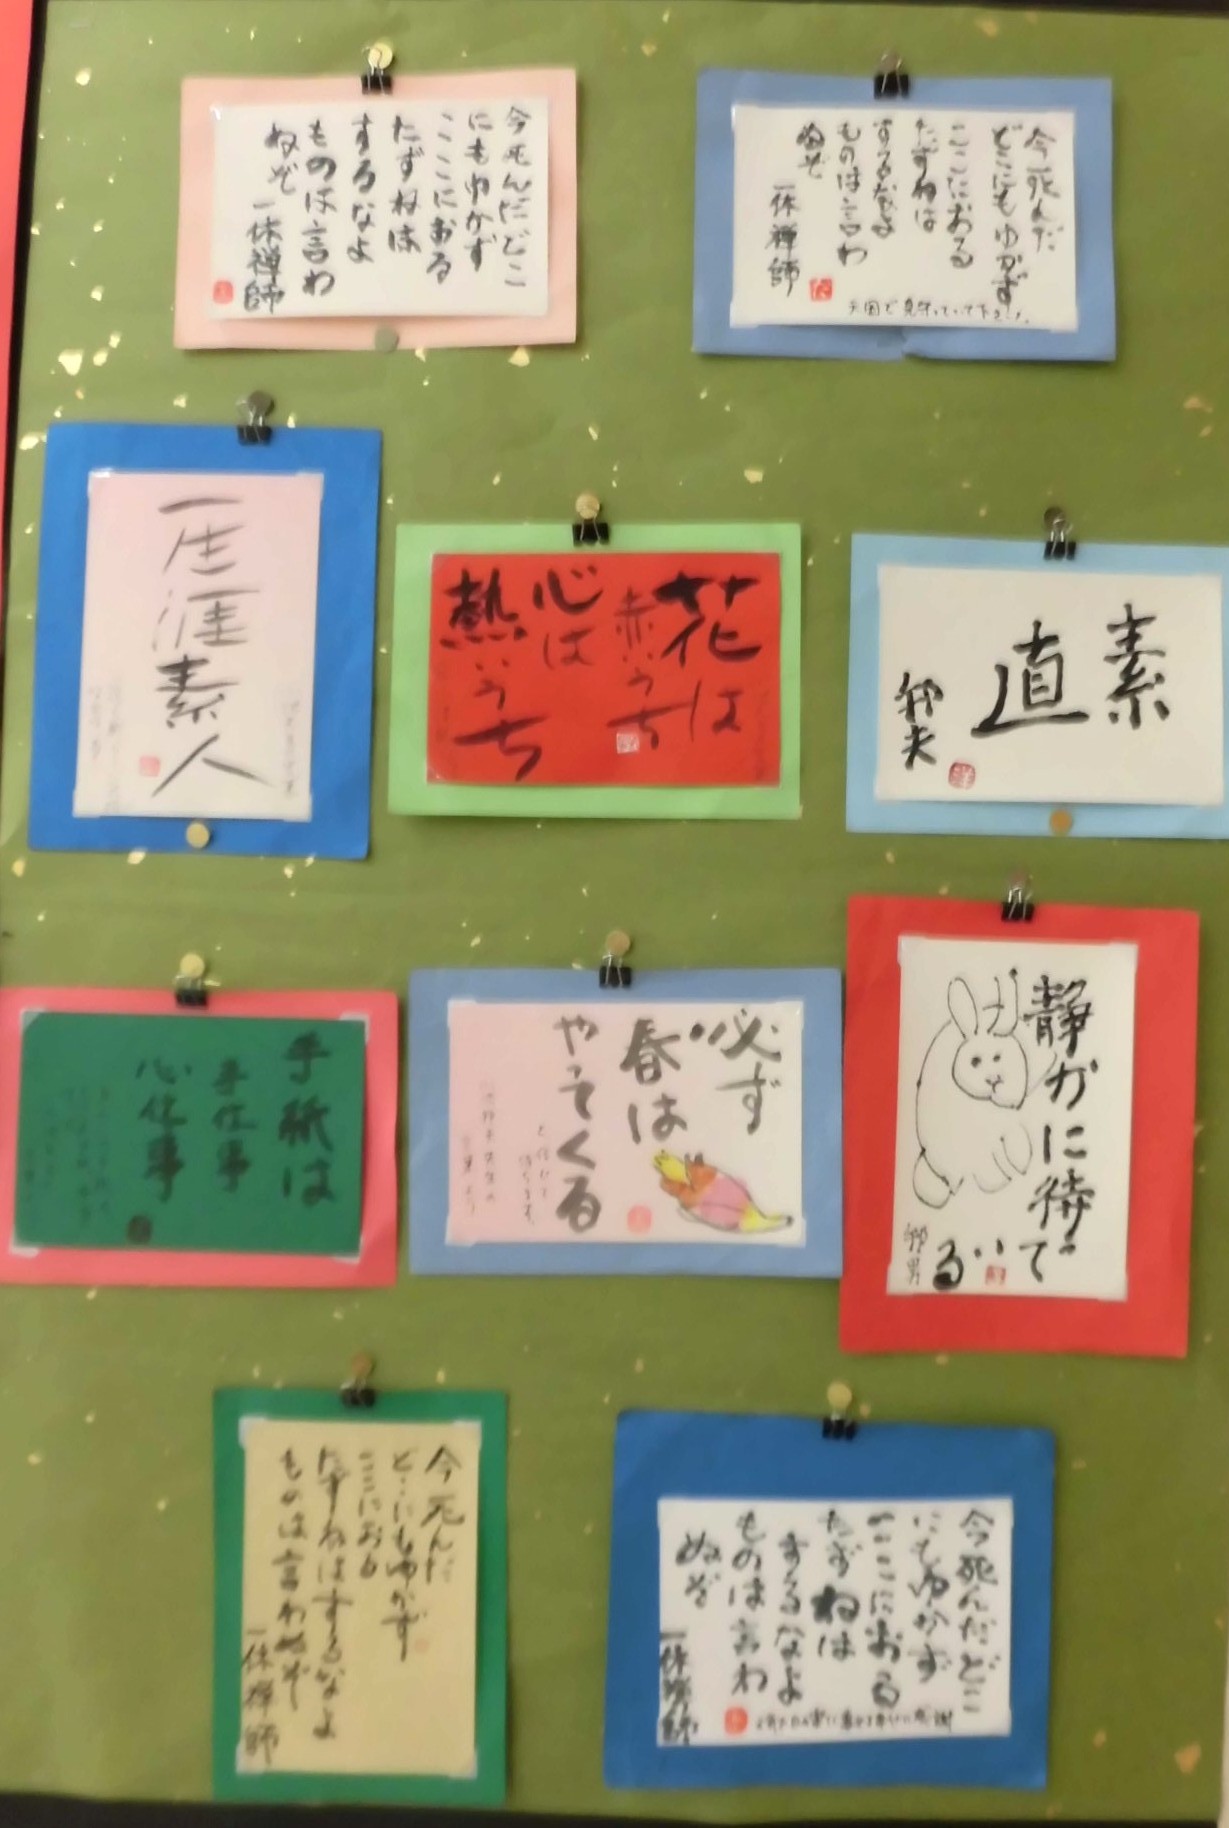 今死んだどこ
にもゆかず
ここにおる
たずねは
するなよ
ものは言わ
ねぞ
一休禅師
今死んだ
どこにもゆかず
ここにおる
たずねは
するなよ
ものは言わ
ぬぞ
一休禅師
天国で見守っていて下さい。
一生涯素人
花は
赤いうち
心は
熱いうち
素
直
手紙は
手仕事
心仕事
必ず
春は
やってくる
と信じて
待ちます。
静かに待って
いる
邦男
今死んだ
どこにもゆかず
ここにおる
たずねはするなよ
ものは言わぬぞ
一休禅師
今死んだどこ
にもゆかず
ここにおる
たずねは
するなよ
ものは言わ
ぬぞ
一休禅師